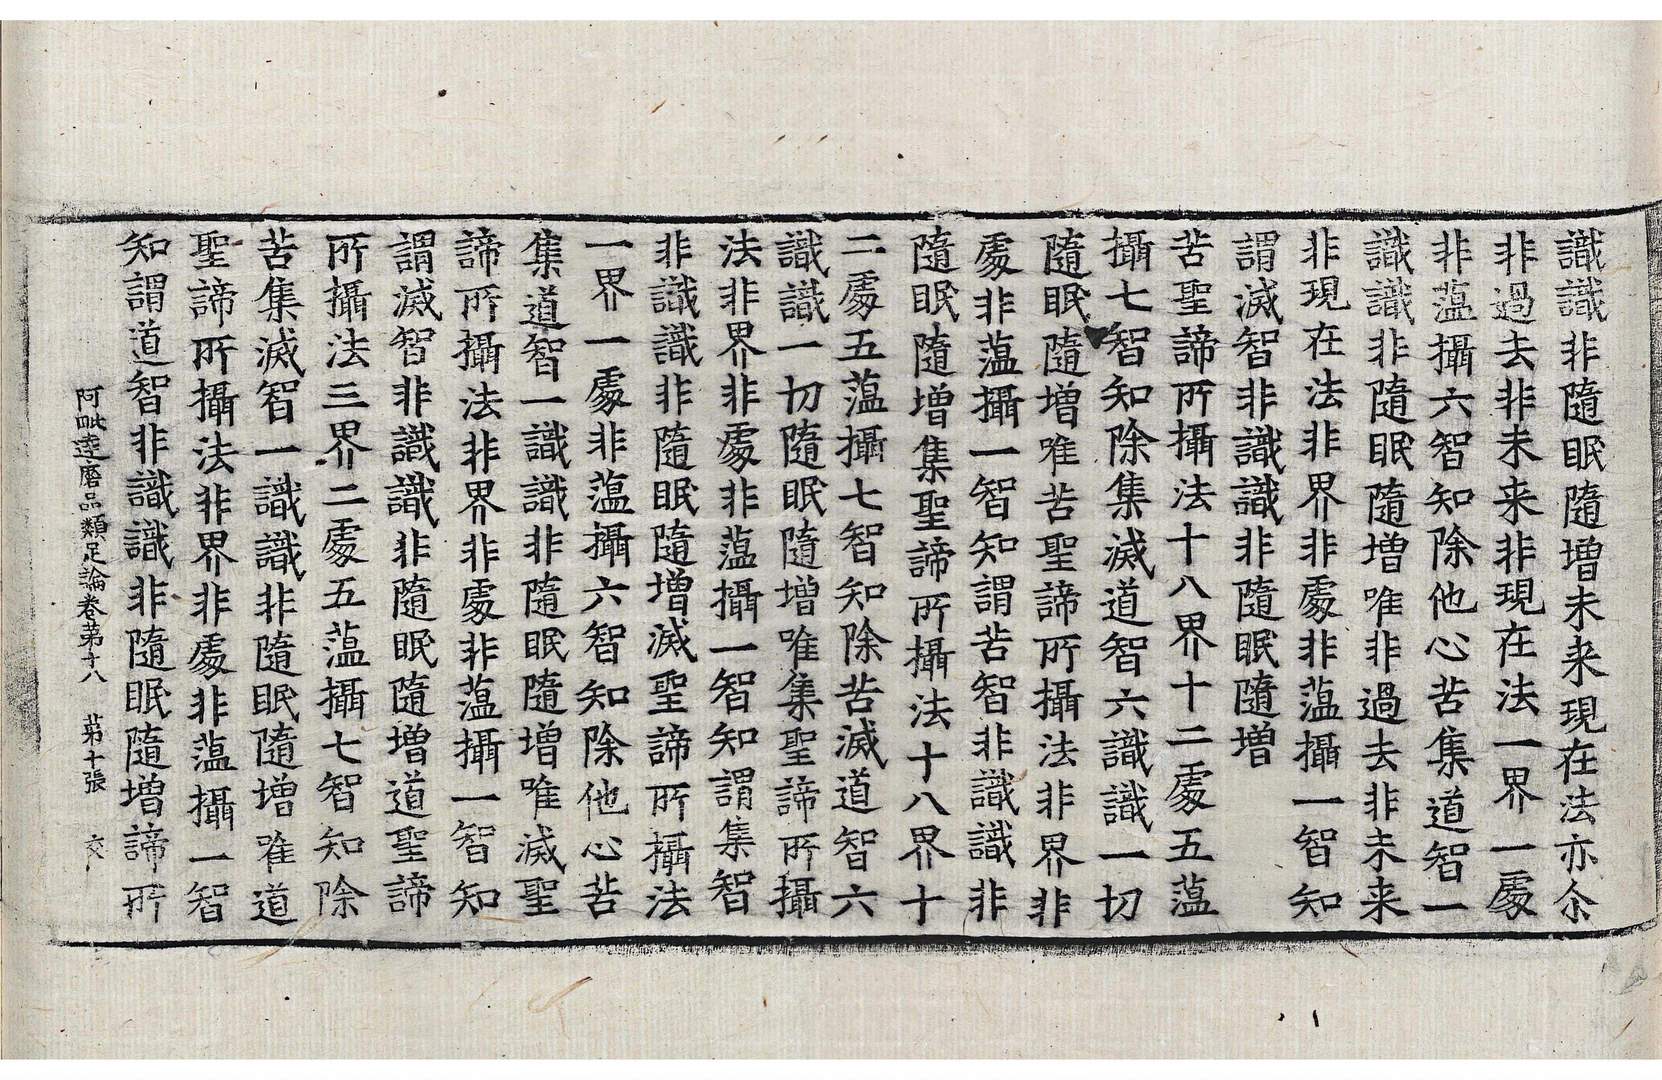 識識非隨眠隨增未来現在法亦尒
非過去非未来非現在法一界一處
非薀攝六智知除他心苦集道智一
識識非隨眠隨增唯非過去非未来
非現在法非界非處非薀攝一智知
謂滅智非識識非隨眠隨增
苦聖諦所攝法十八界十二處五薀
攝七智知除集滅道智六識識一切
隨眠隨增唯苦聖諦所攝法非界非
處非薀攝一智知謂苦智非識識非
隨眠隨增集聖諦所攝法十八界十
二處五薀攝七智知除苦滅道智六
識識一切隨眠隨增唯集聖諦所攝
法非界非處非薀攝一智知謂集智
非識識非隨眠隨增滅聖諦所攝法
一界一處非薀攝六智知除他心苦
集道智一識識非隨眠隨增唯滅聖
諦所攝法非界非處非薀攝一智知
謂滅智非識識非隨眠隨增道聖諦
所攝法三界二處五薀攝七智知除
苦集滅智一識識非隨眠隨增唯道
聖諦所攝法非界非處非薀攝一智
知謂道智非識識非隨眠隨增諦所
阿毗達磨品類足論卷苐十八 苐十張 交